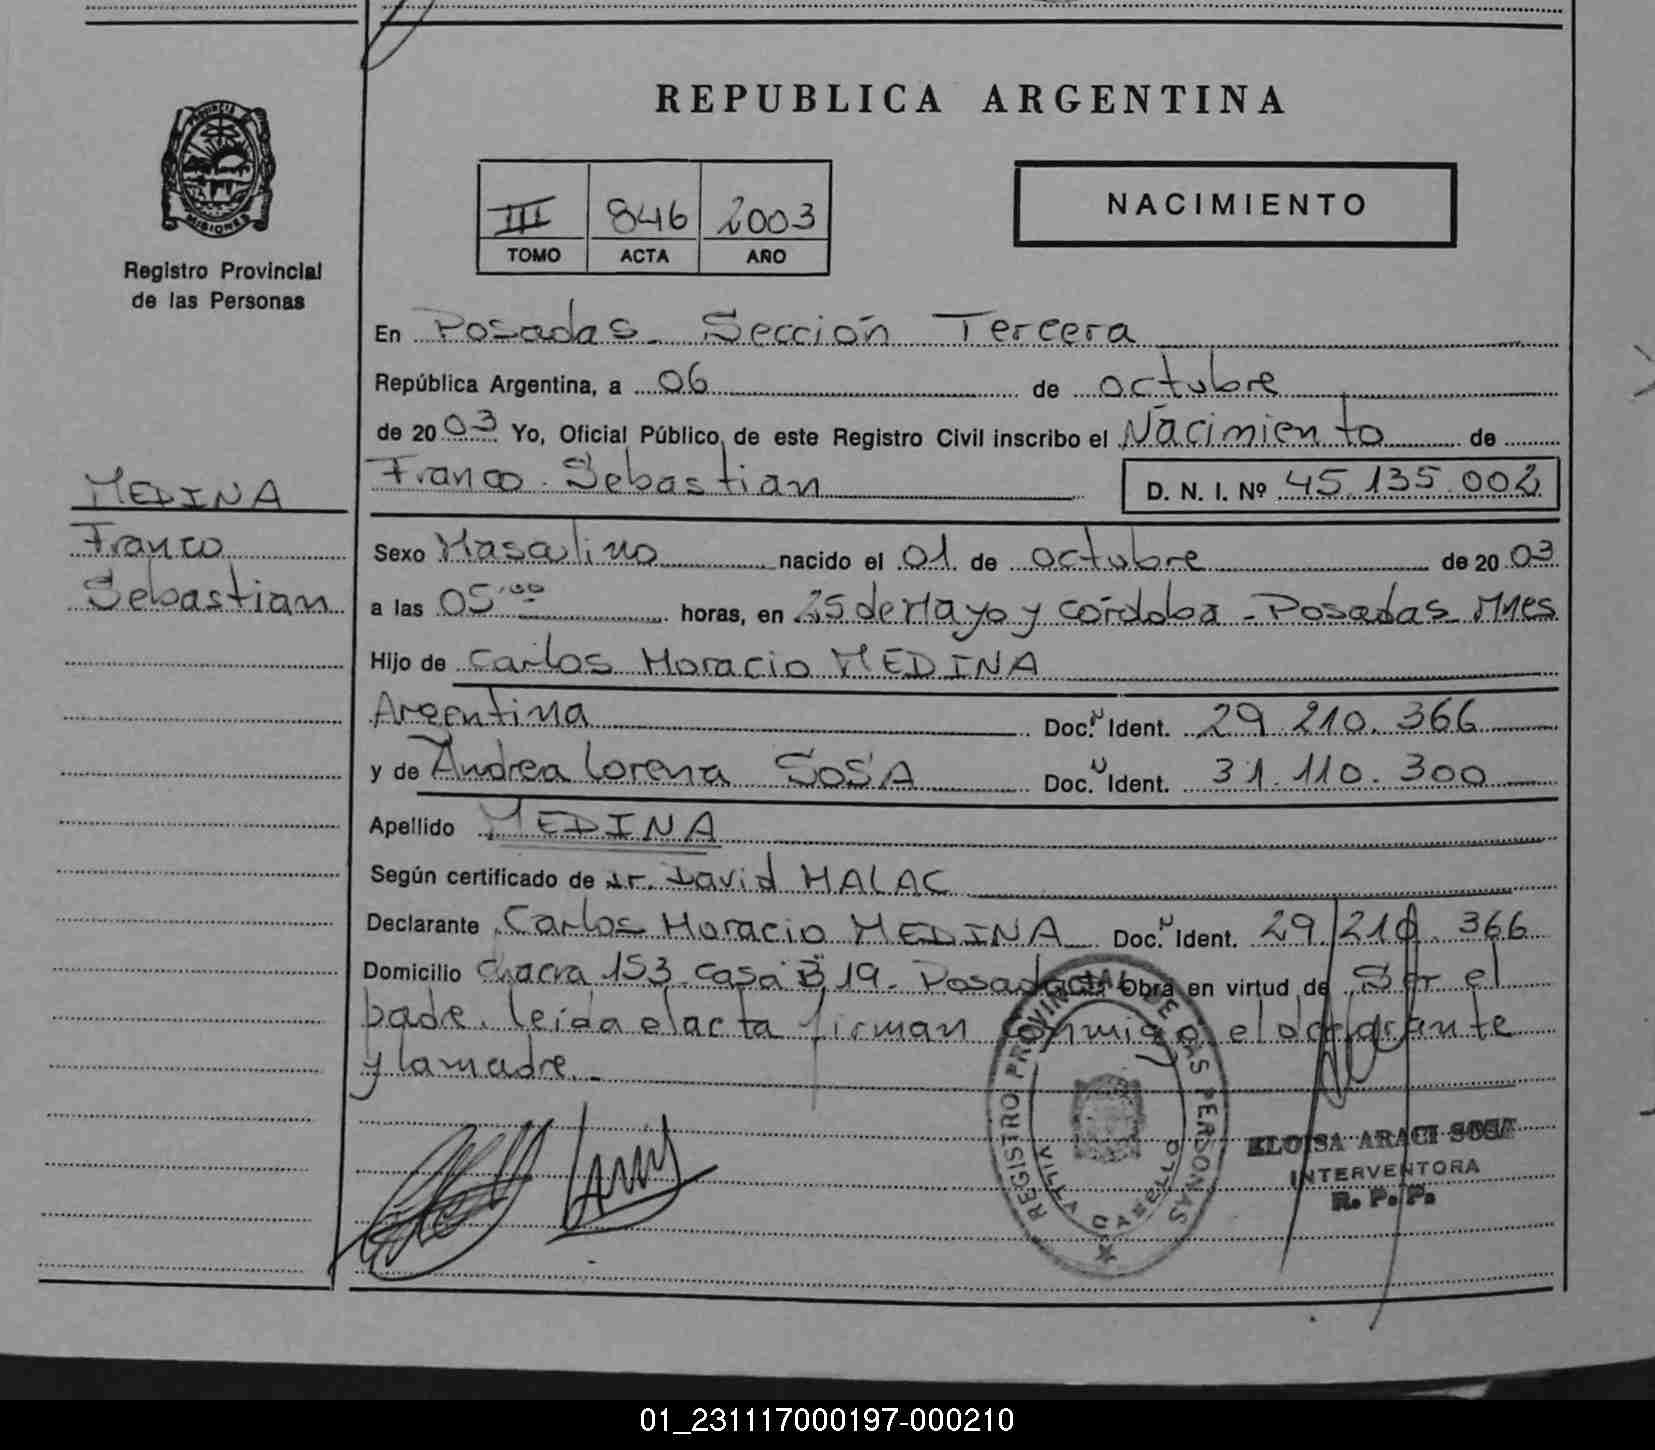 REPUBLICA ARGENTINA
PROVINCIA DE MISIONES
Registro Provincial
de las Personas
III 846 2003
TOMO ACTA AÑO
NACIMIENTO
En Posadas - Sección Tercera
República Argentina, a 06 de octubre
de 2003 Yo, Oficial Público, de este Registro Civil inscribo el Nacimiento de
Franco Sebastian D. N. I. Nº 45.135.002
MEDINA
Franco
Sebastian
Sexo Masculino nacido el 01 de octubre de 2003
a las 05:00 horas, en 25 de Mayo y córdoba - Posadas Mnes
Hijo de Carlos Horacio MEDINA
Argentina Doc. N Ident. 29.210.366
y de Andrea Lorena SOSA Doc. N Ident. 31.110.300
Apellido MEDINA
Según certificado de Dr. David MALAC
Declarante Carlos Horacio MEDINA Doc. N Ident. 29.210.366
Domicilio chacra 153 casa B 19 - Posadas Obra en virtud de Ser el
padre. leida el acta firman conmigo el declarante
y la madre. -
REGISTRO PROVINCIAL DE LAS PERSONAS
VILLA CABELLO
ELOISA ARACI SOSA
INTERVENTORA
R. P. P.
01_231117000197-000210